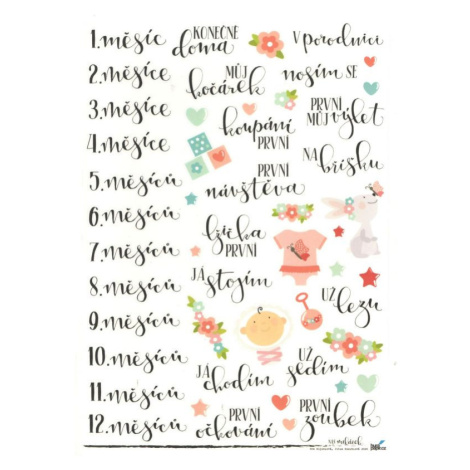 1. měsíc
2. měsíce
3. měsíce
4. měsíce
5. měsíců
6. měsíců
7. měsíců
8. měsíců
9. měsíců
10. měsíců
11. měsíců
12. měsíců
KONEČNĚ
doma
V porodnici
MŮJ
kočárek
nosím SE
PRVNÍ
MŮJ výlet
koupání
PRVNÍ
NA
bříšku
PRVNÍ
návštěva
lžička
PRVNÍ
JÁ
stojím
UŽ
lezu
JÁ
chodím
UŽ
sedím
PRVNÍ
očkování
PRVNÍ
zoubek